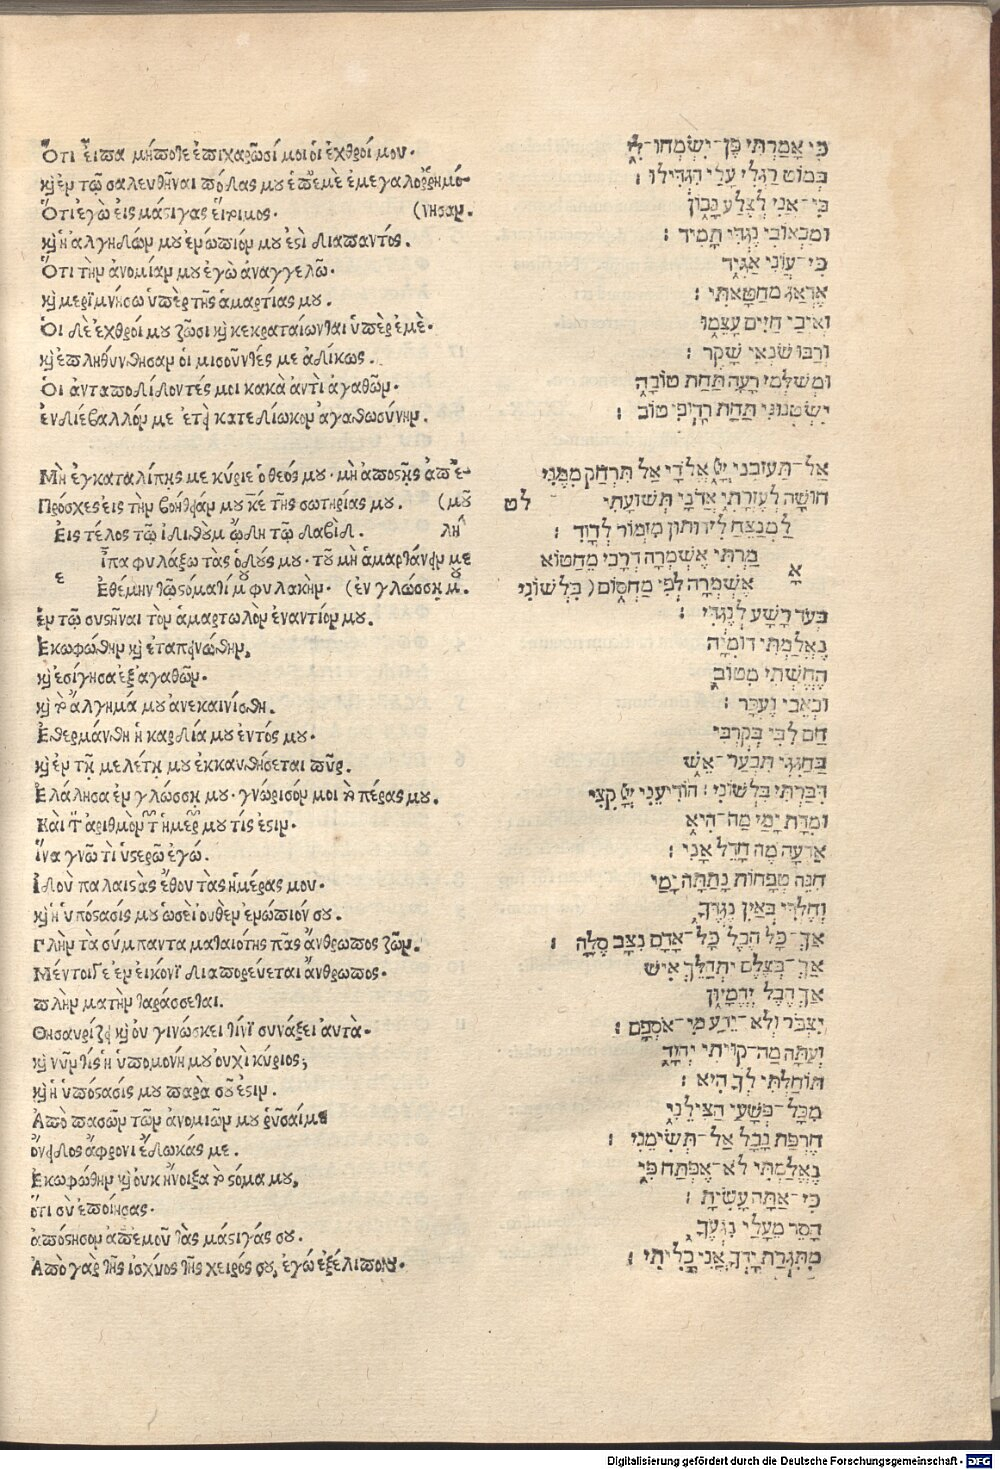 Ὅτι εἶπα μήποτε ἐπιχαρῶσί μοι οἱ ἐχθροί μου·
κỳ ἐν τῷ σαλευθῆναι πόδας μου ἐπ' ἐμὲ ἐμεγαλοῤῥημό-
Ὅτι ἐγὼ εἰς μάστιγας ἕτοιμος· (νησαν.
κỳ ἡ ἀλγηδών μου ἐνώπιόν μου ἐστὶ διαπαντός.
Ὅτι τὴν ἀνομίαν μου ἐγὼ ἀναγγελῶ·
κỳ μεριμνήσω ὑπὲρ τῆς ἁμαρτίας μου.
Οἱ δὲ ἐχθροί μου ζῶσι κỳ κεκραταίωνται ὑπὲρ ἐμέ·
κỳ ἐπληθύνθησαν οἱ μισοῦντές με ἀδίκως.
Οἱ ἀνταποδιδόντές μοι κακὰ ἀντὶ ἀγαθῶν·
ἐνδιέβαλλόν με ἐπεὶ κατεδίωκον ἀγαθωσύνην.
Μὴ ἐγκαταλίπῃς με κύριε ὁ θεός μου· μὴ ἀποστῇς ἀπ' ἐ-
Πρόσχες εἰς τὴν βοήθειάν μου κε τῆς σωτηρίας μου. (μοῦ
Εἰς τέλος τῷ ἰδιθούμ ᾠδὴ τῷ δαβίδ. λη
Εἶπα φυλάξω τὰς ὁδούς μου· τοῦ μὴ ἁμαρτάνειν με
ε Ἐθέμην τῷ στόματί μου φυλακὴν· (ἐν γλώσσῃ μου.
ἐν τῷ συστῆναι τὸν ἁμαρτωλὸν ἐναντίον μου.
Ἐκωφώθην κỳ ἐταπεινώθην,
κỳ ἐσίγησα ἐξ ἀγαθῶν·
κỳ τὸ ἄλγημά μου ἀνεκαινίσθη.
Ἐθερμάνθη ἡ καρδία μου ἐντός μου·
κỳ ἐν τῇ μελέτῃ μου ἐκκαυθήσεται πῦρ.
Ἐλάλησα ἐν γλώσσῃ μου· γνώρισόν μοι κε τὸ πέρας μου.
Καὶ τὸν ἀριθμὸν τῶν ἡμερῶν μου τίς ἐστιν·
ἵνα γνῶ τί ὑστερῶ ἐγώ.
Ἰδοὺ παλαιστὰς ἔθου τὰς ἡμέρας μου·
κỳ ἡ ὑπόστασίς μου ὡσεὶ οὐθὲν ἐνώπιόν σου.
Πλὴν τὰ σύμπαντα ματαιότης πᾶς ἄνθρωπος ζῶν.
Μέντοιγε ἐν εἰκόνι διαπορεύεται ἄνθρωπος·
πλὴν μάτην ταράσσεται.
Θησαυρίζει κỳ οὐ γινώσκει τίνι συνάξει αὐτά·
κỳ νῦν τίς ἡ ὑπομονή μου οὐχὶ κύριος;
κỳ ἡ ὑπόστασίς μου παρὰ σοῦ ἐστιν.
Ἀπὸ πασῶν τῶν ἀνομιῶν μου ῥῦσαί με
ὄνειδος ἄφρονι ἔδωκάς με.
Ἐκωφώθην κỳ οὐκ ἤνοιξα τὸ στόμα μου,
ὅτι σὺ ἐποίησας·
ἀπόστησον ἀπ' ἐμοῦ τὰς μάστιγάς σου.
Ἀπὸ γὰρ τῆς ἰσχύος τῆς χειρός σου, ἐγὼ ἐξέλιπον.
כִּי אָמַרְתִּי פֶּן־יִשְׂמְחוּ־לִי
בְּמוֹט רַגְלִי עָלַי הִגְדִּילוּ׃
כִּי־אֲנִי לְצֶלַע נָכוֹן
וּמַכְאוֹבִי נֶגְדִּי תָמִיד׃
כִּי־עֲוֹנִי אַגִּיד
אֶדְאַג מֵחַטָּאתִי׃
וְאֹיְבַי חַיִּים עָצֵמוּ
וְרַבּוּ שֹׂנְאַי שָׁקֶר׃
וּמְשַׁלְּמֵי רָעָה תַּחַת טוֹבָה
יִשְׂטְנוּנִי תַּחַת רָדְפִי טוֹב׃
אַל־תַּעַזְבֵנִי יְיָ אֱלֹהַי אַל תִּרְחַק מִמֶּנִּי
חוּשָׁה לְעֶזְרָתִי אֲדֹנָי תְּשׁוּעָתִי לט
לַמְנַצֵּחַ לִידוּתוּן מִזְמוֹר לְדָוִד׃
אָ מַרְתִּי אֶשְׁמְרָה דְרָכַי מֵחֲטוֹא
אֶשְׁמְרָה לְפִי מַחְסוֹם (בִּלְשׁוֹנִי
בְּעֹד רָשָׁע לְנֶגְדִּי׃
נֶאֱלַמְתִּי דוּמִיָּה
הֶחֱשֵׁיתִי מִטּוֹב
וּכְאֵבִי נֶעְכָּר׃
חַם לִבִּי בְּקִרְבִּי
בַּהֲגִיגִי תִבְעַר־אֵשׁ
דִּבַּרְתִּי בִּלְשׁוֹנִי׃ הוֹדִיעֵנִי יְיָ קִצִּי
וּמִדַּת יָמַי מַה־הִיא
אֵדְעָה מֶה חָדֵל אָנִי׃
הִנֵּה טְפָחוֹת נָתַתָּה יָמַי
וְחֶלְדִּי כְאַיִן נֶגְדֶּךָ
אַךְ־כָּל הֶבֶל כָּל־אָדָם נִצָּב סֶלָה׃
אַךְ־בְּצֶלֶם יִתְהַלֶּךְ אִישׁ
אַךְ הֶבֶל יֶהֱמָיוּן
יִצְבֹּר וְלֹא־יֵדַע מִי־אֹסְפָם׃
וְעַתָּה מַה־קִּוִּיתִי יְהוָה
תּוֹחַלְתִּי לְךָ הִיא׃
מִכָּל־פְּשָׁעַי הַצִּילֵנִי
חֶרְפַּת נָבָל אַל־תְּשִׂימֵנִי׃
נֶאֱלַמְתִּי לֹא־אֶפְתַּח פִּי
כִּי־אַתָּה עָשִׂיתָ׃
הָסֵר מֵעָלַי נִגְעֶךָ
מִתִּגְרַת יָדְךָ אֲנִי כָלִיתִי׃
Digitalisierung gefördert durch die Deutsche Forschungsgemeinschaft - DFG